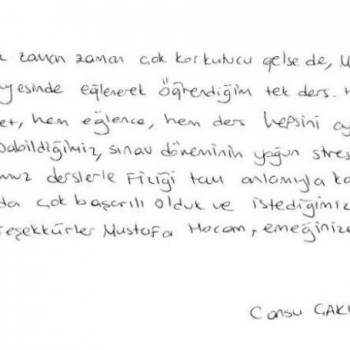 zaman zaman çok korkutucu gelse de, M
yesinde eğlenerek öğrendiğim tek ders. H
et, hem eğlence, hem ders hepsini ay
pabildiğimiz, sınav döneminin yoğun stres
muz derslerle Fiziği tam anlamıyla ka
da çok başarılı olduk ve istediğimiz
Teşekkürler Mustafa Hocam, emeğinize
Cansu ÇAKI